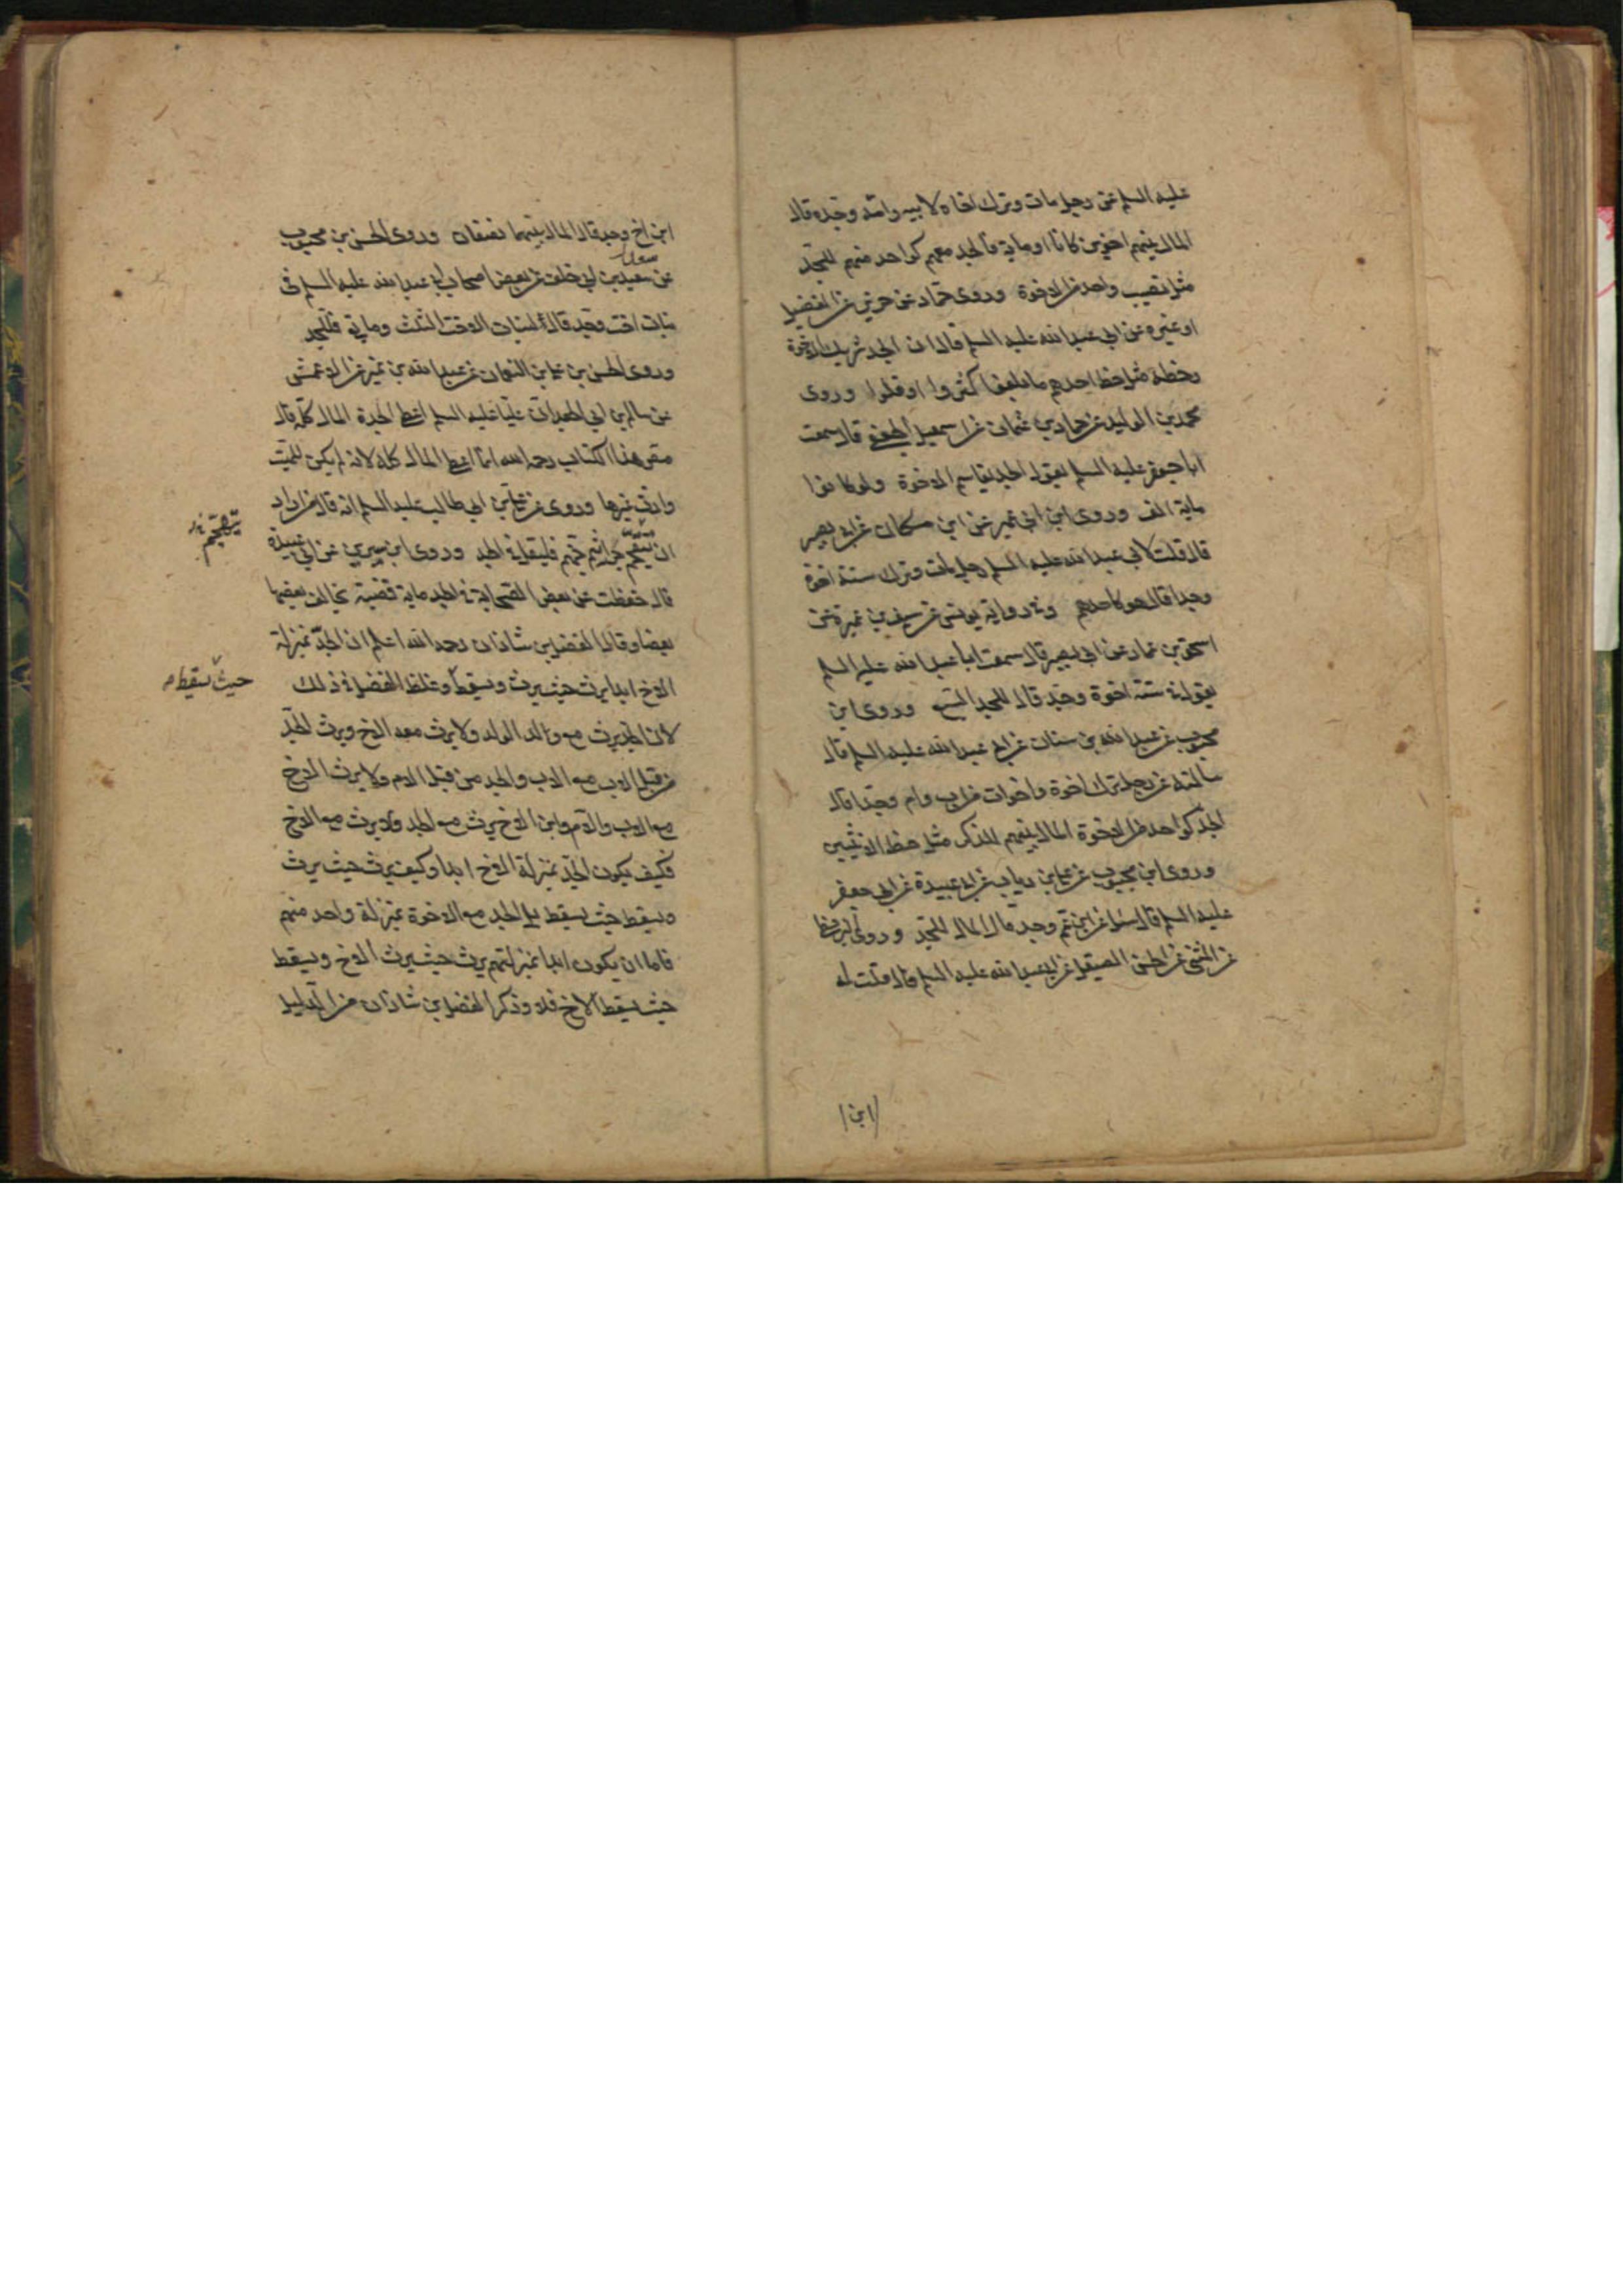 عليه السلم عن رجل مات وترك اخاه لابيه وامه وجده قال
المال بينهم اخوين كانا او ماية فالجد معهم كواحد منهم للجد
مثل نصيب واحد من الاخوة وروى حماد عن حريز عن الفضيل
او غيره عن ابي عبد الله عليه السلم قال ان الجد شريك الاخوة
وحظه مثل حظ احدهم ما بلغوا كثروا او قلوا وروى
محمد بن الوليد عن حماد بن عثمان عن اسمعيل الجعفي قال سمعت
ابا جعفر عليه السلم يقول الجد يقاسم الاخوة ولو كانوا
ماية الف وروى ابن ابي عمير عن ابن مسكان عن ابي بصير
قال قلت لابي عبد الله عليه السلم رجل مات وترك ستة اخوة
وجدا قال هو كاحدهم وفي رواية يونس عن سيف بن عميرة عن
اسحق بن عمار عن ابي بصير قال سمعت ابا عبد الله عليه السلم
يقول في ستة اخوة وجد قال للجد السبع وروى ابن
محبوب عن عبد الله بن سنان عن ابي عبد الله عليه السلم قال
سالته عن رجل ترك اخوة واخوات من اب وام وجدا قال
الجد كواحد من الاخوة المال بينهم للذكر مثل حظ الانثيين
وروى ابن محبوب عن علي بن رياب عن ابي عبيدة عن ابي جعفر
عليه السلم قال سئل عن ابن عم وجد قال المال للجد وروى البزنطي
عن المثنى عن الحسن الصيقل عن ابي عبد الله عليه السلم قال قلت له
ابن
ابن اخ وجد قال المال بينهما نصفان وروى الحسن بن محبوب
سعد
عن سعيد بن ابي خلف عن بعض اصحاب ابي عبد الله عليه السلم في
بنات اخت وجد قال لبنات الاخت الثلث وما بقي فللجد
وروى الحسن بن علي بن النعمان عن عبد الله بن نمير عن الاعمش
عن سالم بن ابي الجعد ان عليا عليه السلم اعطى الجدة المال كله قال
مصنف هذا الكتاب رحمه الله انما اعطى المال كله لانه لم يكن للميت
وارث غيرها وروى عن علي بن ابي طالب عليه السلم انه قال من اراد
ان يتقحم جراثيم جهنم فليقل في الجد وروى ابن سيرين عن ابي عبيدة
يتهجم
قال حفظت عن بعض الصحابة في الجد ماية قضية يخالف بعضها
بعضا وقال الفضل بن شاذان رحمه الله اعلم ان الجد بمنزلة
الاخ ابدا يرث حيث يرث ويسقط وغلط الفضل في ذلك
حيث يسقط
لان الجد يرث مع والد الولد ولا يرث معه الاخ ويرث الجد
من قبل الاب مع الاب والجد من قبل الام ولا يرث الاخ
مع الاب والام وابن الاخ يرث مع الجد ولا يرث مع الاخ
فكيف يكون الجد بمنزلة الاخ ابدا وكيف يرث حيث يرث
ويسقط حيث يسقط بل الجد مع الاخوة بمنزلة واحد منهم
فاما ان يكون ابدا بمنزلتهم يرث حيث يرث الاخ ويسقط
حيث يسقط الاخ فلا وذكر الفضل بن شاذان من الدليل